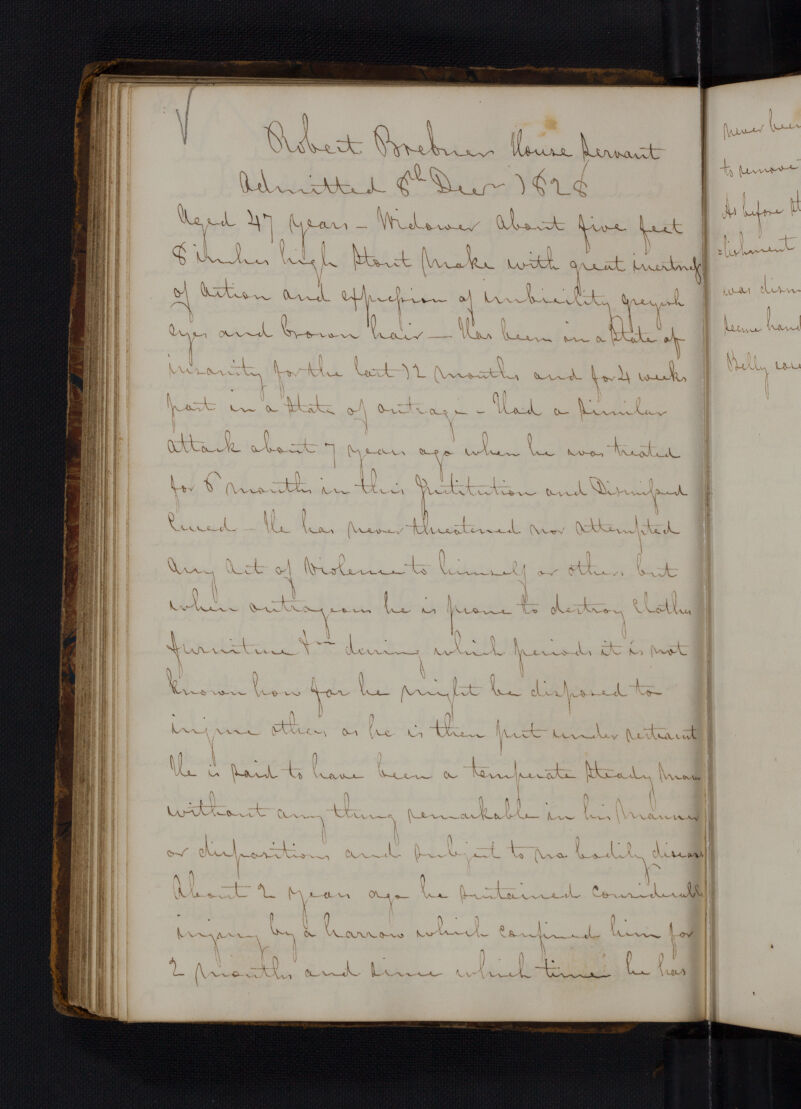 Robert Brebner House Servant
Admitted 8th Decr 1828
Aged 47 years – Widower about five feet
8 inches high Stout Make with great inertness
of action and expression of imbecility greyish
eyes and brown hair – Has been in a State of
insanity for the last 12 months and for 4 weeks
past in a State of outrage – Had a Similar
attack about 7 years ago when he was treated
for 6 months in this Institution and Dismissed
Cured – He has never threatened nor attempted
any Act of Violence to himself or others but
when outrageous he is prone to destroy Clothes
furniture &c during which periods it is not
known how far he might be disposed to
injure others as he is then put under restraint
He is Said to have been a temperate Steady Man
without any thing remarkable in his Manner
or dispositions and Subject to no bodily disease
About 2 years ago he sustained Considerable
injury by a harrow which confined him for
2 months and since which time he has
never been
to remove
As before
was
Belly